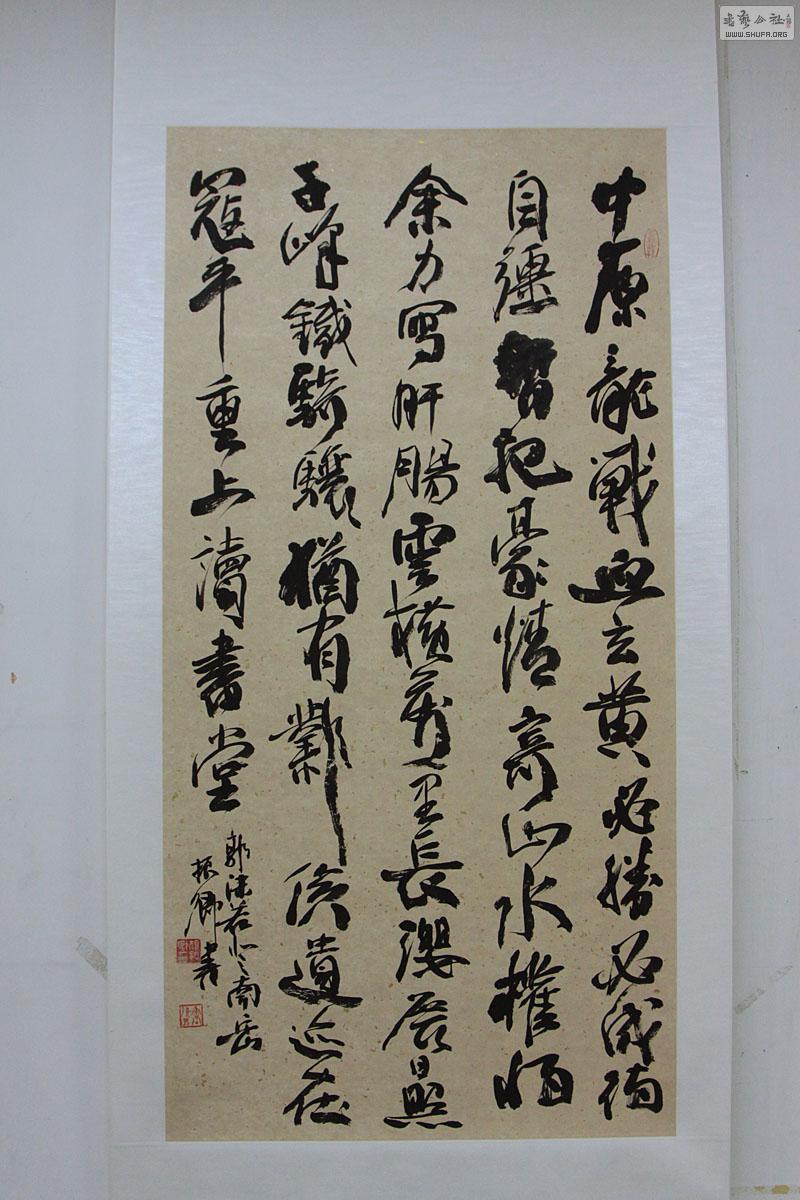 中原龍戰血玄黄必勝必成恃
自彊暫把豪情寄山水權將
余力寫肝腸雲橫萬里長纓展日照
千峰鐵騎驤猶有鄴侯遺迹在
寇平重上讀書堂
郭沫若登南岳
振卿書
書藝公社
WWW.SHUFA.ORG